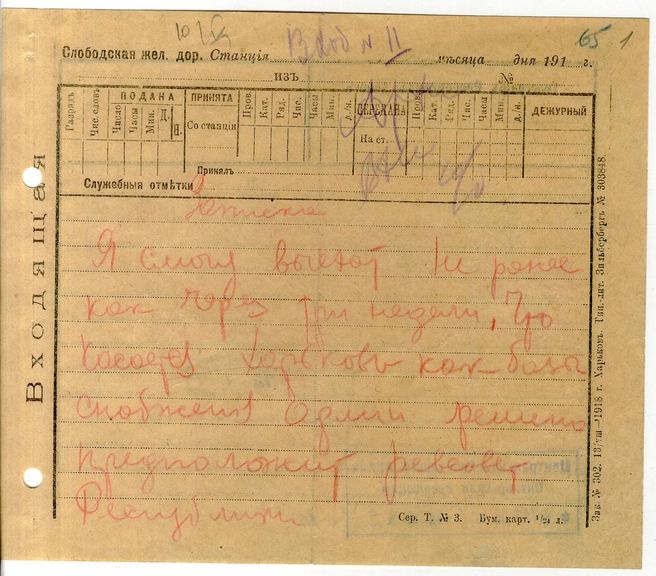 65 1
Слободская жел. дор. Станція Вход № II мѣсяца дня 191 г.
изъ №
Разрядъ Чис. словъ ПОДАНА Число Часы Мин. Д. П. ПРИНЯТА Со станціи Пров. Кат. Ряд. Чис. Часы Мин. д./н. ПЕРЕДАНА На ст. Пров. Кат. Ряд. Чис. Часы Мин. д./н. ДЕЖУРНЫЙ
Принялъ
Служебныя отмѣтки
Входящая
Записка
Я смогу выехат не ранее
как через три недели, Что
касается Харькова как базы
снабжения Армии решено
предположит ревсовет
Республики
Сер. Т. № 3. Бум. карт. 1/24 л.
Зак. № 302. 13/VIII—1918 г. Харьковъ. Тип.-лит. Зильбербергъ № 303848.